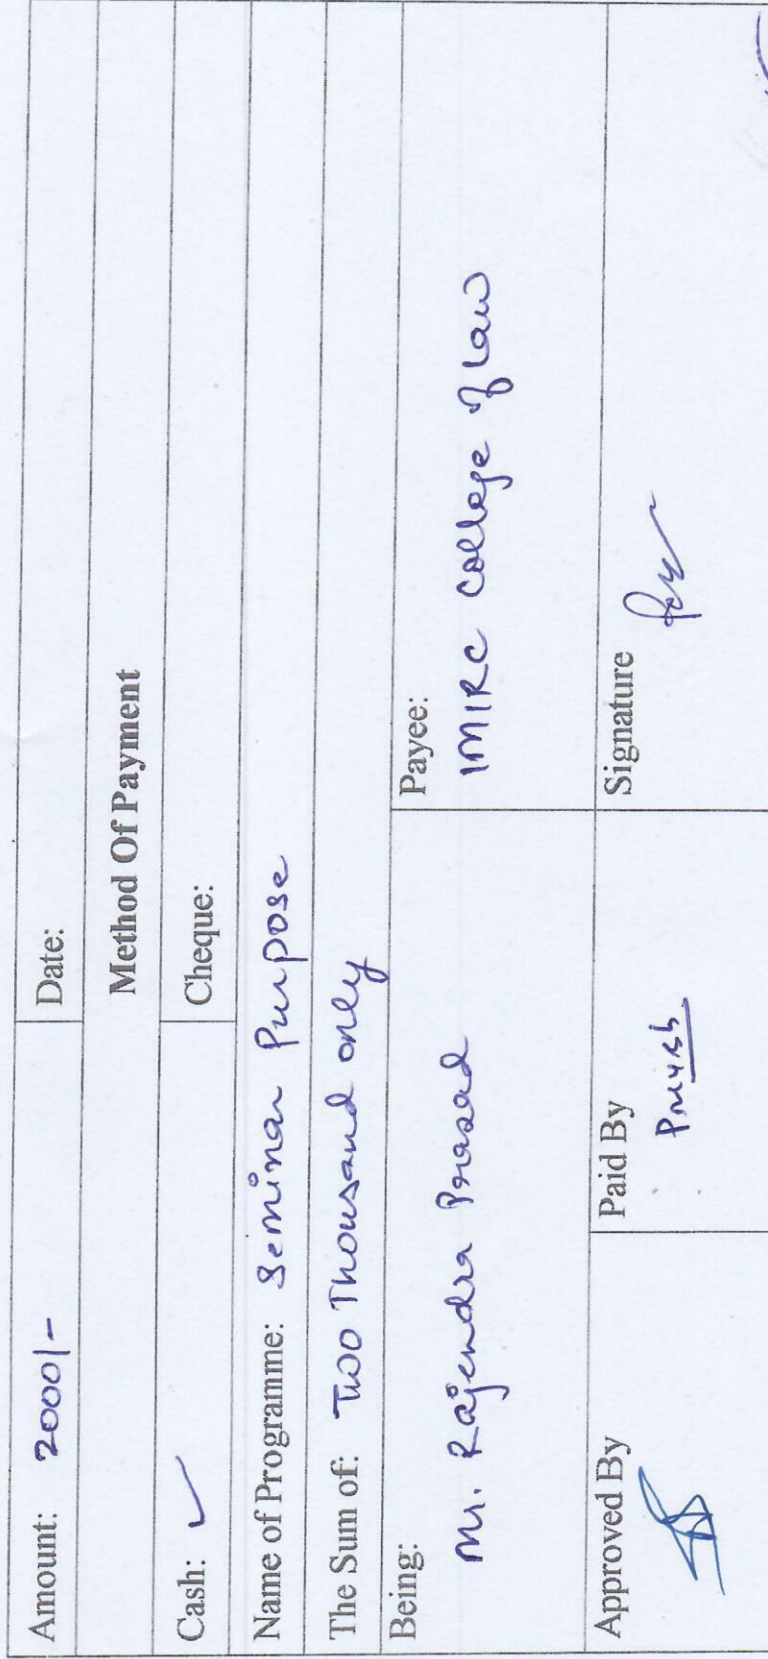 Amount: 2000/-
Date:
Method Of Payment
Cash: ✓
Cheque:
Name of Programme: Seminar Purpose
The Sum of: Two Thousand only
Being:
Mr. Rajendra Prasad
Payee:
IMIRC College of Law
Approved By
Paid By
Signature